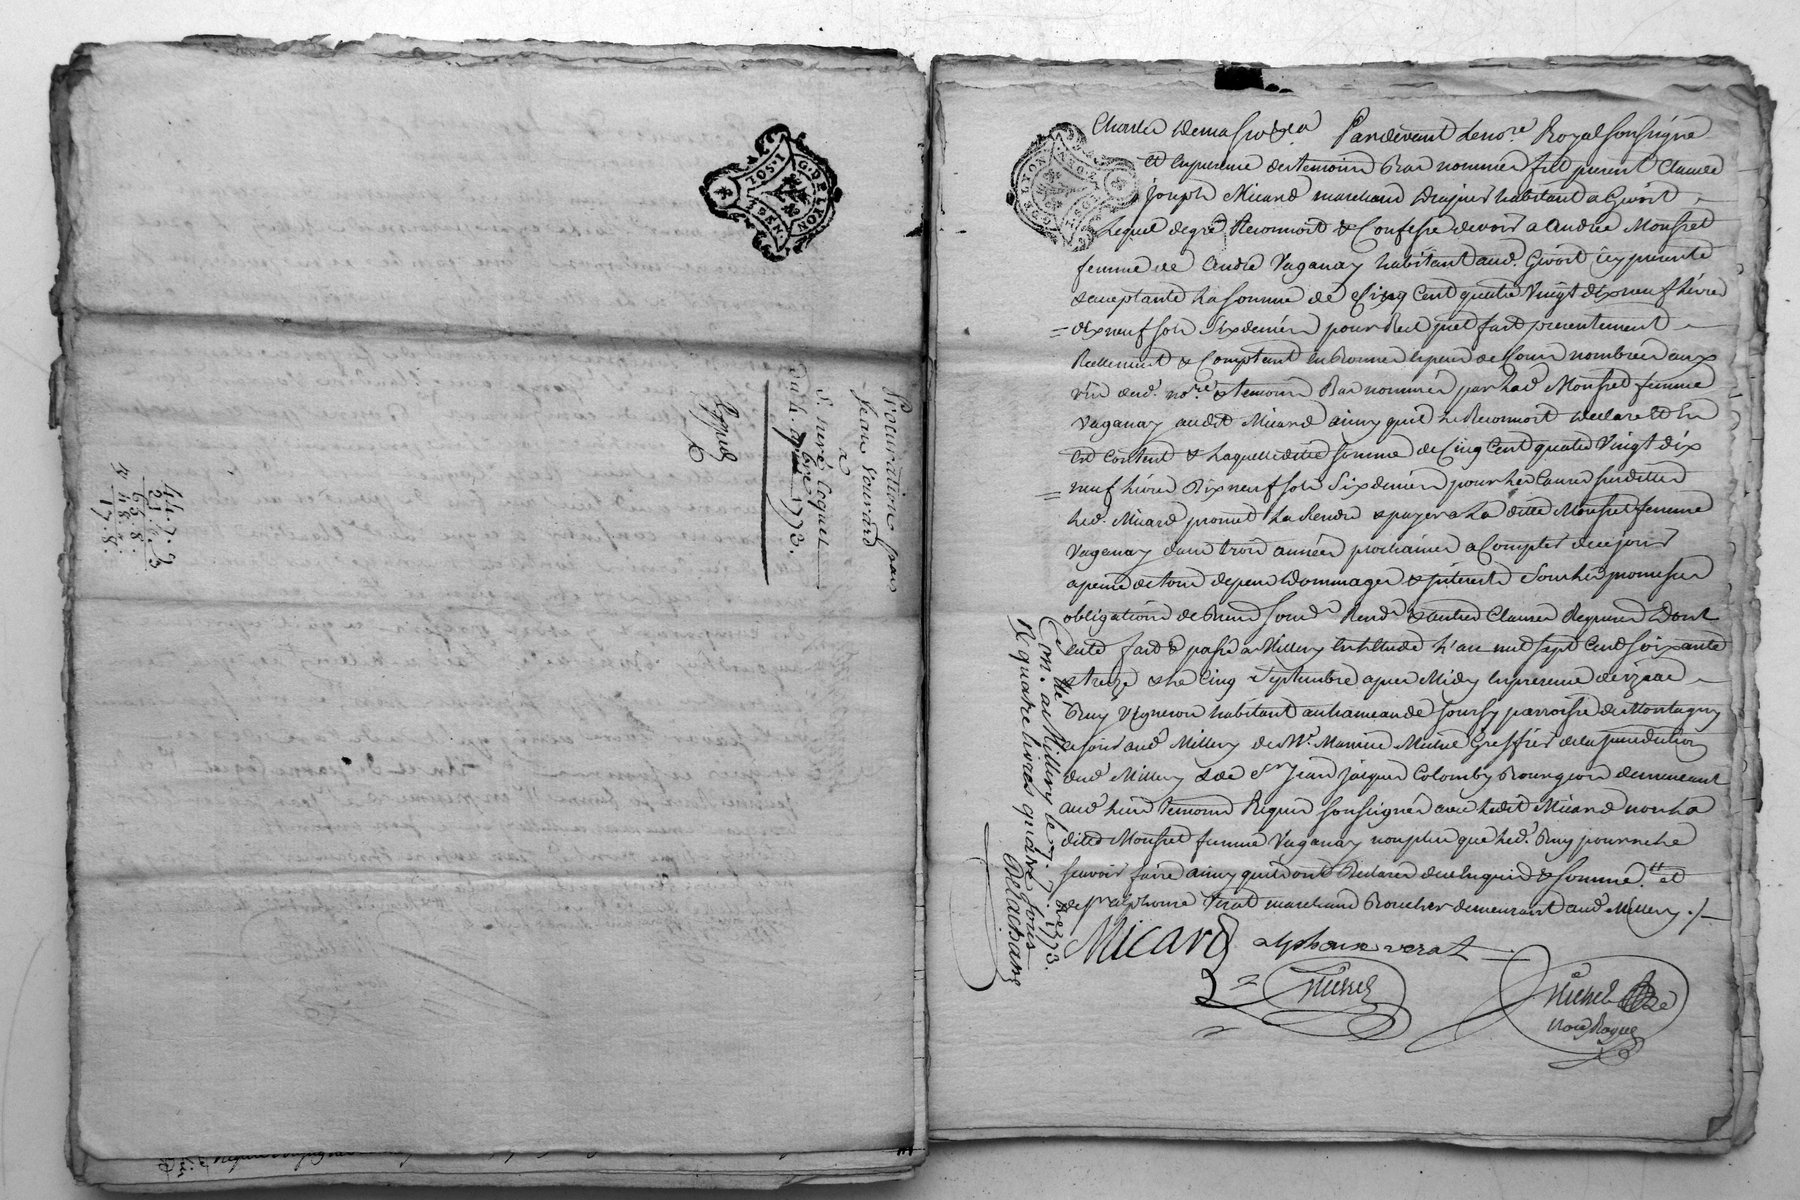 G. DE LYON
10 S. I
DEN.
Procuration par
Jean Bouvard
a
S. néré Coquet
du 4 7bre 1773.
Expedié
44. 7. 3
21. 1. 5
65. 8. 8
48.
17. 8.
Pardevant Le nore. Royal soussigné
Et En presence des temoins Bas nommés fut present Claude
joseph Micard marchand Drapier habitant a Givort
Lequel de gré Reconnoit & Confesse devoir a Andrée Mousset
femme de André Vaganay habitant aud. Givort icy presente
& aceptante La somme de Cinq Cent quatre Vingt dix neuf Livres
dix neuf sols Six deniers pour Reel pret fait presentement
Reellement & Comptant En Bonnes Especes de Cours nombrées aux
vûs dud. nore. & temoins Bas nommés par Lad. Mousset femme
Vaganay audit Micard ainsy quil Le Reconnoit declare Et En
Est Content & Laquelle ditte somme de Cinq Cent quatre Vingt dix
neuf Livres Dix neuf sols Six deniers pour Les Causes susdittes
Led. Micard promet La Rendre & payer a La ditte Mousset femme
Vaganay dans trois années prochaines a Compter de ce jour
a peine de tous depens Dommages & interets Sous Les promesses
obligations de Biens soumns. Rencns. & autres Clauses Requises Dont
acte fait & passé a Millery En Etude L'an mil sept Cent soixante
& treize & Le Cinq Septembre apres Midy En presence d'izaac
Buy Vigneron habitant au hameau de Soursy parroisse de Montagny
de jour aud. Millery de Mr. Maurice Michel Greffier de la jurediction
dud. Millery & de Sr. Jean Jacques Colomby Bourgeois demeurant
aud. Lieu temoins Requis soussignés avec Ledit Micard non La
ditte Mousset femme Vaganay non plus que Led. Buy pour ne Le
sçavoir faire ainsy quils ont Declarés de ce Enquis & sommés. et
de Sr. alphonse Verat marchand Boucher demeurant aud. Millery ./.
Micard alphonse verat
Michel
Michel
Nore Royal
Con. a Millery le 7. 7bre 1773.
R. quatre livres quatre sous
Dellachans